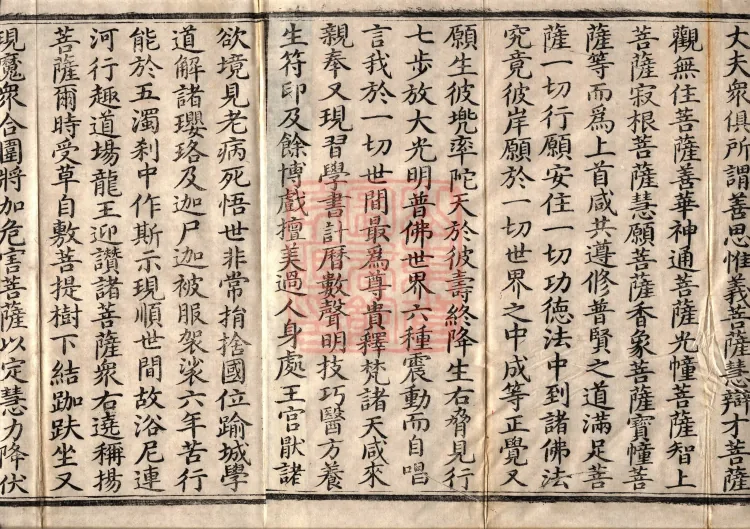 丈夫衆俱所謂善思惟義菩薩慧辯才菩薩
觀無住菩薩善華神通菩薩光幢菩薩智上
菩薩寂根菩薩慧願菩薩香象菩薩寶幢菩
薩等而爲上首咸共遵修普賢之道滿足菩
薩一切行願安住一切功德法中到諸佛法
究竟彼岸願於一切世界之中成等正覺又
願生彼兜率陀天於彼壽終降生右脅見行
七步放大光明普佛世界六種震動而自唱
言我於一切世間最爲尊貴釋梵諸天咸來
親奉又現習學書計曆數聲明技巧醫方養
生符印及餘博戲擅美過人身處王宮猒諸
欲境見老病死悟世非常捐捨國位踰城學
道解諸瓔珞及迦尸迦被服袈裟六年苦行
能於五濁刹中作斯示現順世間故浴尼連
河行趣道場龍王迎讃諸菩薩衆右遶稱揚
菩薩爾時受草自敷菩提樹下結跏趺坐又
現魔衆合圍將加危害菩薩以定慧力降伏